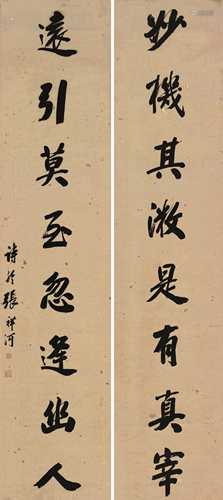 妙機其微是有真宰
遠引莫至忽逢幽人
詩舲張祥河